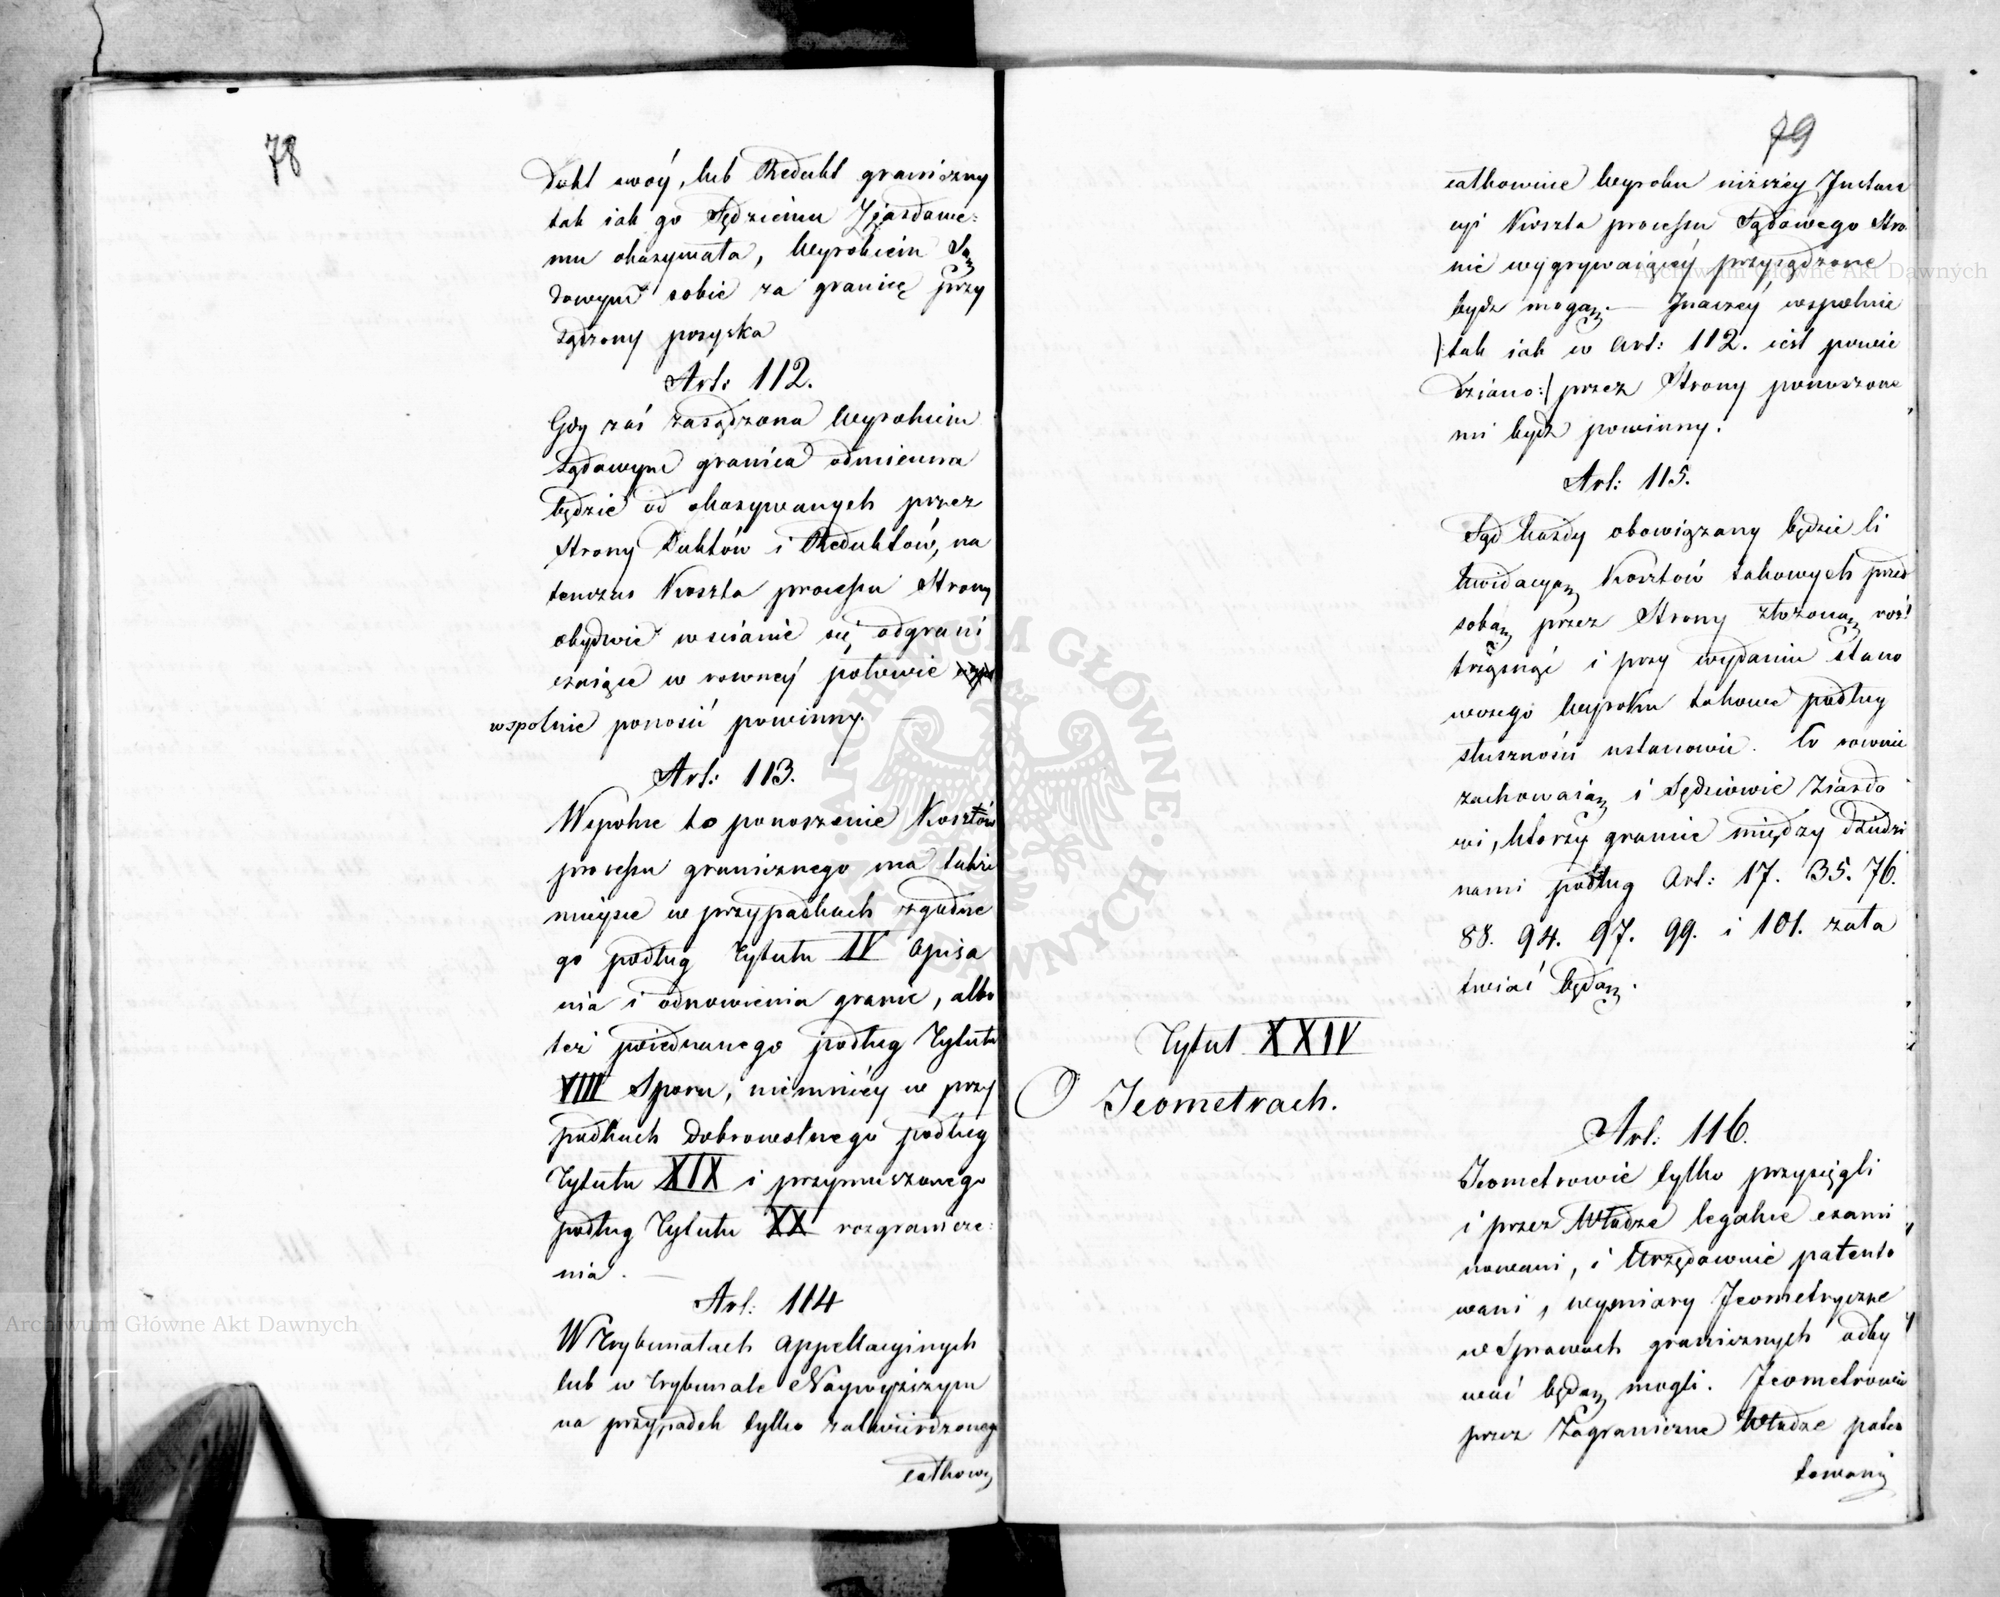 78
Dukt swóy, lub Redukt graniczny
tak iak go Sędziemu Zjazdowe=
mu okazywała, Wyrokiem Są
dowym sobie za granicę przy
sądzony pozyska
Art: 112.
Gdy zaś zasądzona Wyrokiem
Sądowym granica odmienna
będzie od okazywanych przez
Strony Duktów i Reduktów, na
tenczas Koszta processu Strony
obydwie w scianie się odgrani
czaiące w rowney połowie
wspolnie ponosić powinny.
Art: 113.
Wspolne to ponoszenie Kosztów
processu granicznego ma także
mieysce w przypadkach zgodne
go podług Tytułu IV Opisa
nia i odnowienia granic, albo
też poiednanego podług Tytułu
VIII Sporu, niemniéy w przy
padkach Dobrowolnego podług
Tytułu XIX i przymuszonego
podług Tytułu XX rozgranicze=
nia. —
Art: 114
W Trybunałach Appellacyinych
lub w Trybunale Naywyższym
na przypadek tylko zatwierdzonego
całkowi
79
całkowicie Wyroku niższéy Instan
cyi Koszta processu Sądowego Stro
nie wygrywaiącéy przysądzone
bydź mogą. — Inaczey, wspolnie
/: tak iak w Art: 112. iest powie
dziano :/ przez Strony ponoszone
mi bydź powinny.
Art: 115.
Sąd każdy obowiązany będzie li
kwidacyą Kosztów takowych przed
sobą przez Strony złożoną roz
trząsnąć i przy wydaniu stano
wczego Wyroku takowe podług
słuszności ustanowić. To rownie
zachowaią i Sędziowie Ziazdo
wi, którzy granice między dziedzi
nami podług Art: 17. 35. 76.
88. 94. 97. 99. i 101. zała
twiać będą.
Tytuł XXIV
O Jeometrach.
Art: 116.
Jeometrowie tylko przysięgli
i przez Władze legalnie exami
nowani, i Urzędownie patento
wani, wymiary Jeometryczne
w Sprawach granicznych odby
wać będą mogli. Jeometrowie
przez Zagraniczne Władze paten
towani
ARCHIWUM GŁÓWNE AKT DAWNYCH
Archiwum Główne Akt Dawnych
Archiwum Główne Akt Dawnych